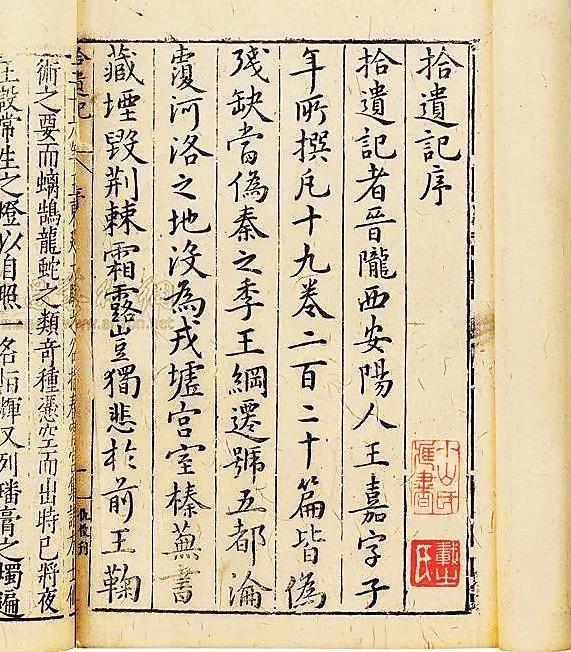 拾遺記序
拾遺記者晉隴西安陽人王嘉字子
年所撰凡十九卷二百二十篇皆偽
殘缺當偽秦之季王綱遷號五都淪
覆河洛之地沒為戎墟宮室榛蕪書
藏堙毀荊棘霜露豈獨悲於前王鞠
拾遺記
術之要而螭鵠龍蛇之類奇種憑空而出時已將夜
王設常生之燈以自照一名恒輝又列璠膏之燭遍